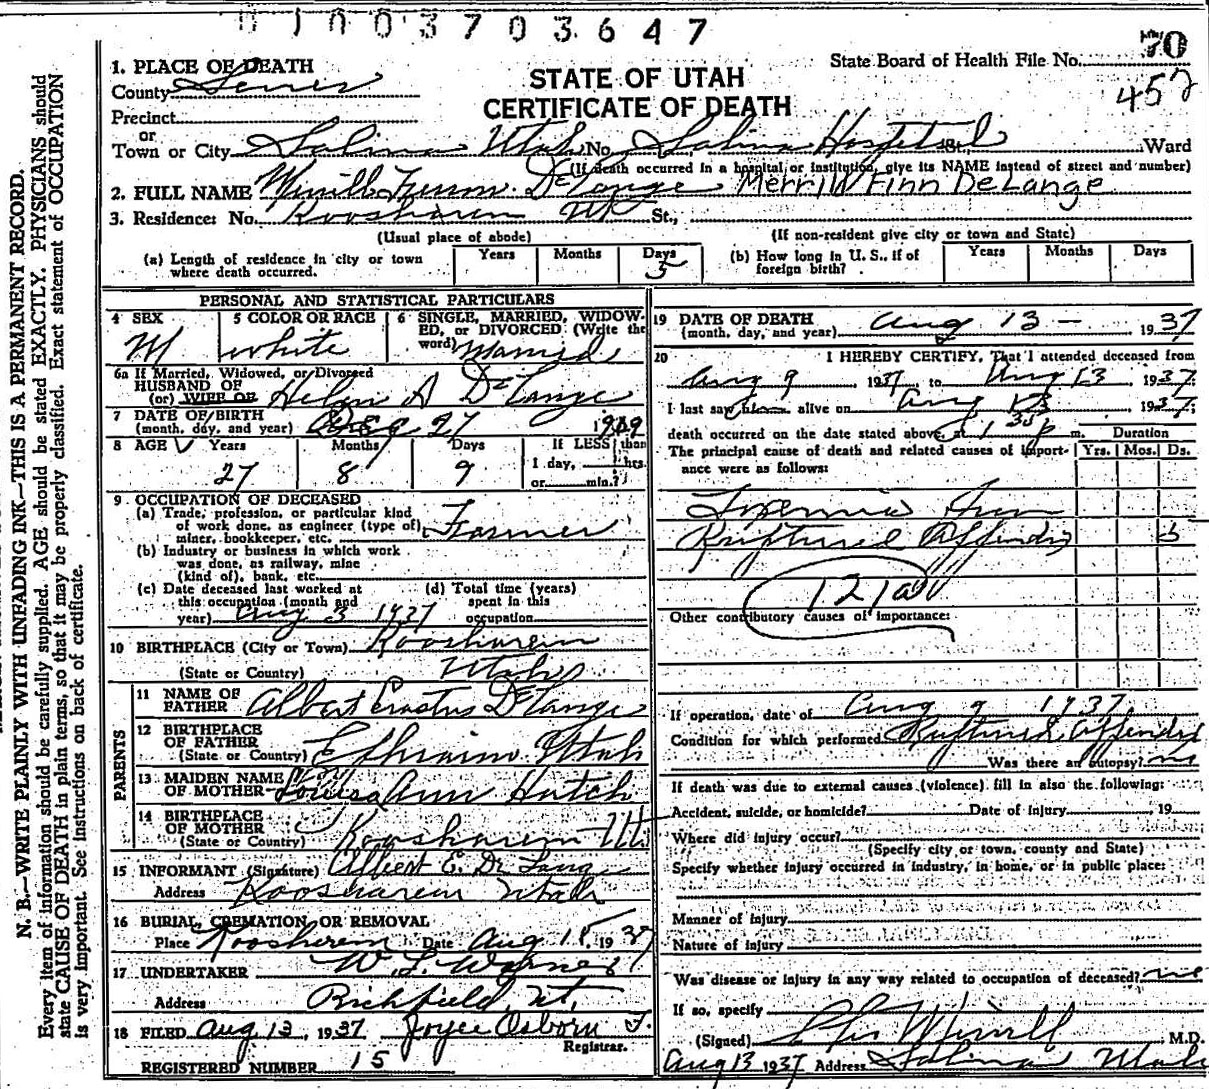 01003703647
70
State Board of Health File No.
452
1. PLACE OF DEATH
STATE OF UTAH
CERTIFICATE OF DEATH
County Sevier
Precinct
or
Town or City Salina Utah No. Salina Hospital St., Ward
(If death occurred in a hospital or institution, give its NAME instead of street and number)
2. FULL NAME Merrill DeLange Merrill Finn DeLange
3. Residence: No. Koosharem Ut St.,
(Usual place of abode) (If non-resident give city or town and State)
(a) Length of residence in city or town where death occurred. Years Months Days 5 (b) How long in U. S., if of foreign birth? Years Months Days
PERSONAL AND STATISTICAL PARTICULARS
4 SEX M
5 COLOR OR RACE white
6 SINGLE, MARRIED, WIDOWED, or DIVORCED (Write the word) Married
6a If Married, Widowed, or Divorced
HUSBAND OF
(or) WIFE OF Helen A DeLange
7 DATE OF BIRTH
(month, day, and year) 27 1909
8 AGE Years 27 Months 8 Days 9 If LESS than 1 day, hrs. or min.?
9 OCCUPATION OF DECEASED
(a) Trade, profession, or particular kind
of work done, as engineer (type of)
miner, bookkeeper, etc. Farmer
(b) Industry or business in which work
was done, as railway, mine
(kind of), bank, etc.
(c) Date deceased last worked at
this occupation (month and
year) Aug 3 1937
(d) Total time (years)
spent in this
occupation
10 BIRTHPLACE (City or Town) Koosharem
(State or Country) Utah
PARENTS
11 NAME OF
FATHER Albert Erastus DeLange
12 BIRTHPLACE
OF FATHER
(State or Country) Ephraim Utah
13 MAIDEN NAME
OF MOTHER Louisa Ann Hatch
14 BIRTHPLACE
OF MOTHER
(State or Country) Koosharem Ut.
15 INFORMANT (Signature) Albert E. DeLange
Address Koosharem Utah
16 BURIAL, CREMATION OR REMOVAL
Place Koosharem Date Aug 15, 1937
17 UNDERTAKER W. L. Warner
Address Richfield, Ut.
18 FILED Aug 13, 1937 Joyce Osborn
Registrar.
REGISTERED NUMBER 15
19 DATE OF DEATH
(month, day, and year) Aug 13 - 1937
20 I HEREBY CERTIFY, That I attended deceased from
Aug 9 1937 to Aug 13 1937
I last saw alive on Aug 13 1937;
death occurred on the date stated above, at 1 30 p m. Duration
The principal cause of death and related causes of importance were as follows: Yrs. Mos. Ds.
Ruptured Appendix 5
121a
Other contributory causes of importance:
If operation, date of Aug 9 1937
Condition for which performed Ruptured Appendix
Was there an autopsy? no
If death was due to external causes (violence) fill in also the following:
Accident, suicide, or homicide? Date of Injury 19
Where did injury occur?
(Specify city or town, county and State)
Specify whether injury occurred in industry, in home, or in public place:
Manner of injury
Nature of Injury
Was disease or injury in any way related to occupation of deceased? no
If so, specify
(Signed) M.D.
Aug 13 1937 Address Salina Utah
N. B.—WRITE PLAINLY WITH UNFADING INK—THIS IS A PERMANENT RECORD.
Every item of information should be carefully supplied. AGE should be stated EXACTLY. PHYSICIANS should
state CAUSE OF DEATH in plain terms, so that it may be properly classified. Exact statement of OCCUPATION
is very important. See instructions on back of certificate.